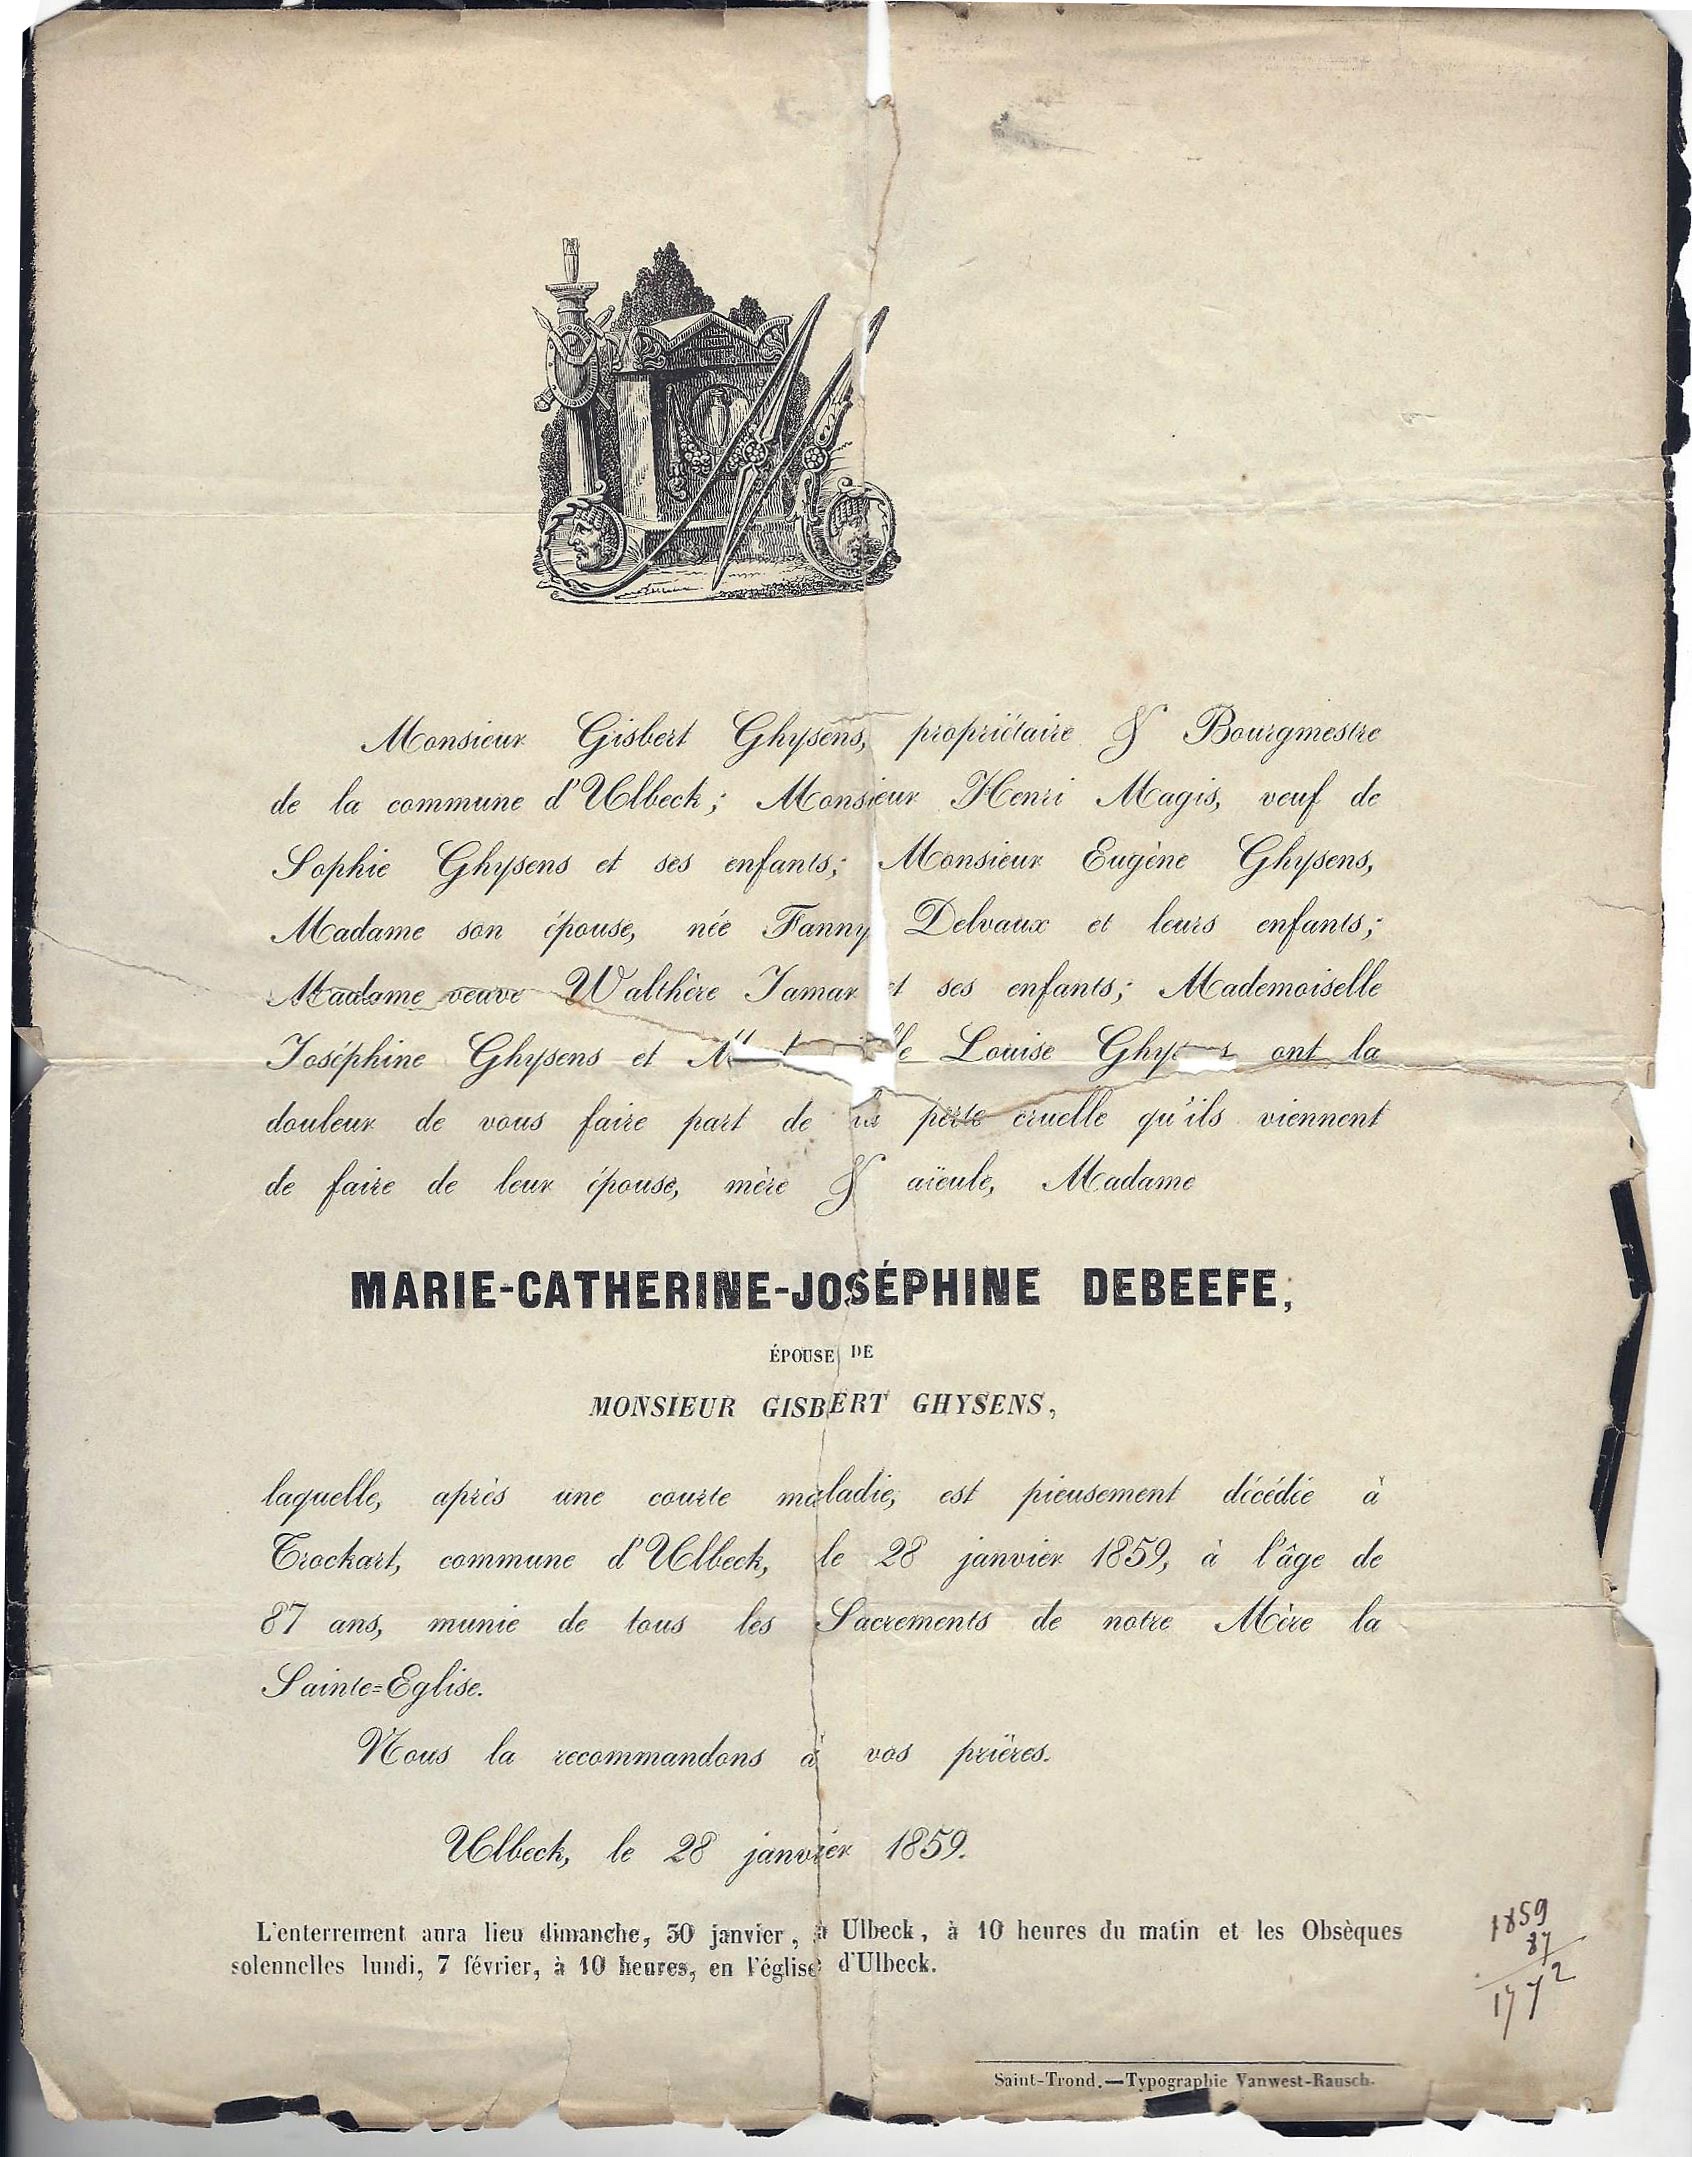 Monsieur Gisbert Ghysens, propriétaire & Bourgmestre
de la commune d'Ulbeck; Monsieur Henri Magis, veuf de
Sophie Ghysens et ses enfants; Monsieur Eugène Ghysens,
Madame son épouse, née Fanny Delvaux et leurs enfants;
Madame veuve Walthère Jamar et ses enfants; Mademoiselle
Joséphine Ghysens et Louise Ghysens ont la
douleur de vous faire part de la perte cruelle qu'ils viennent
de faire de leur épouse, mère & aïeule, Madame
MARIE-CATHERINE-JOSÉPHINE DEBEEFE,
ÉPOUSE DE
MONSIEUR GISBERT GHYSENS,
laquelle, après une courte maladie, est pieusement décédée à
Trockart, commune d'Ulbeck, le 28 janvier 1859, à l'âge de
87 ans, munie de tous les Sacrements de notre Mère la
Sainte=Eglise.
Nous la recommandons à vos prières.
Ulbeck, le 28 janvier 1859.
L'enterrement aura lieu dimanche, 30 janvier, à Ulbeck, à 10 heures du matin et les Obsèques
solennelles lundi, 7 février, à 10 heures, en l'église d'Ulbeck.
1859
87
1772
Saint-Trond.—Typographie Vanwest-Rausch.